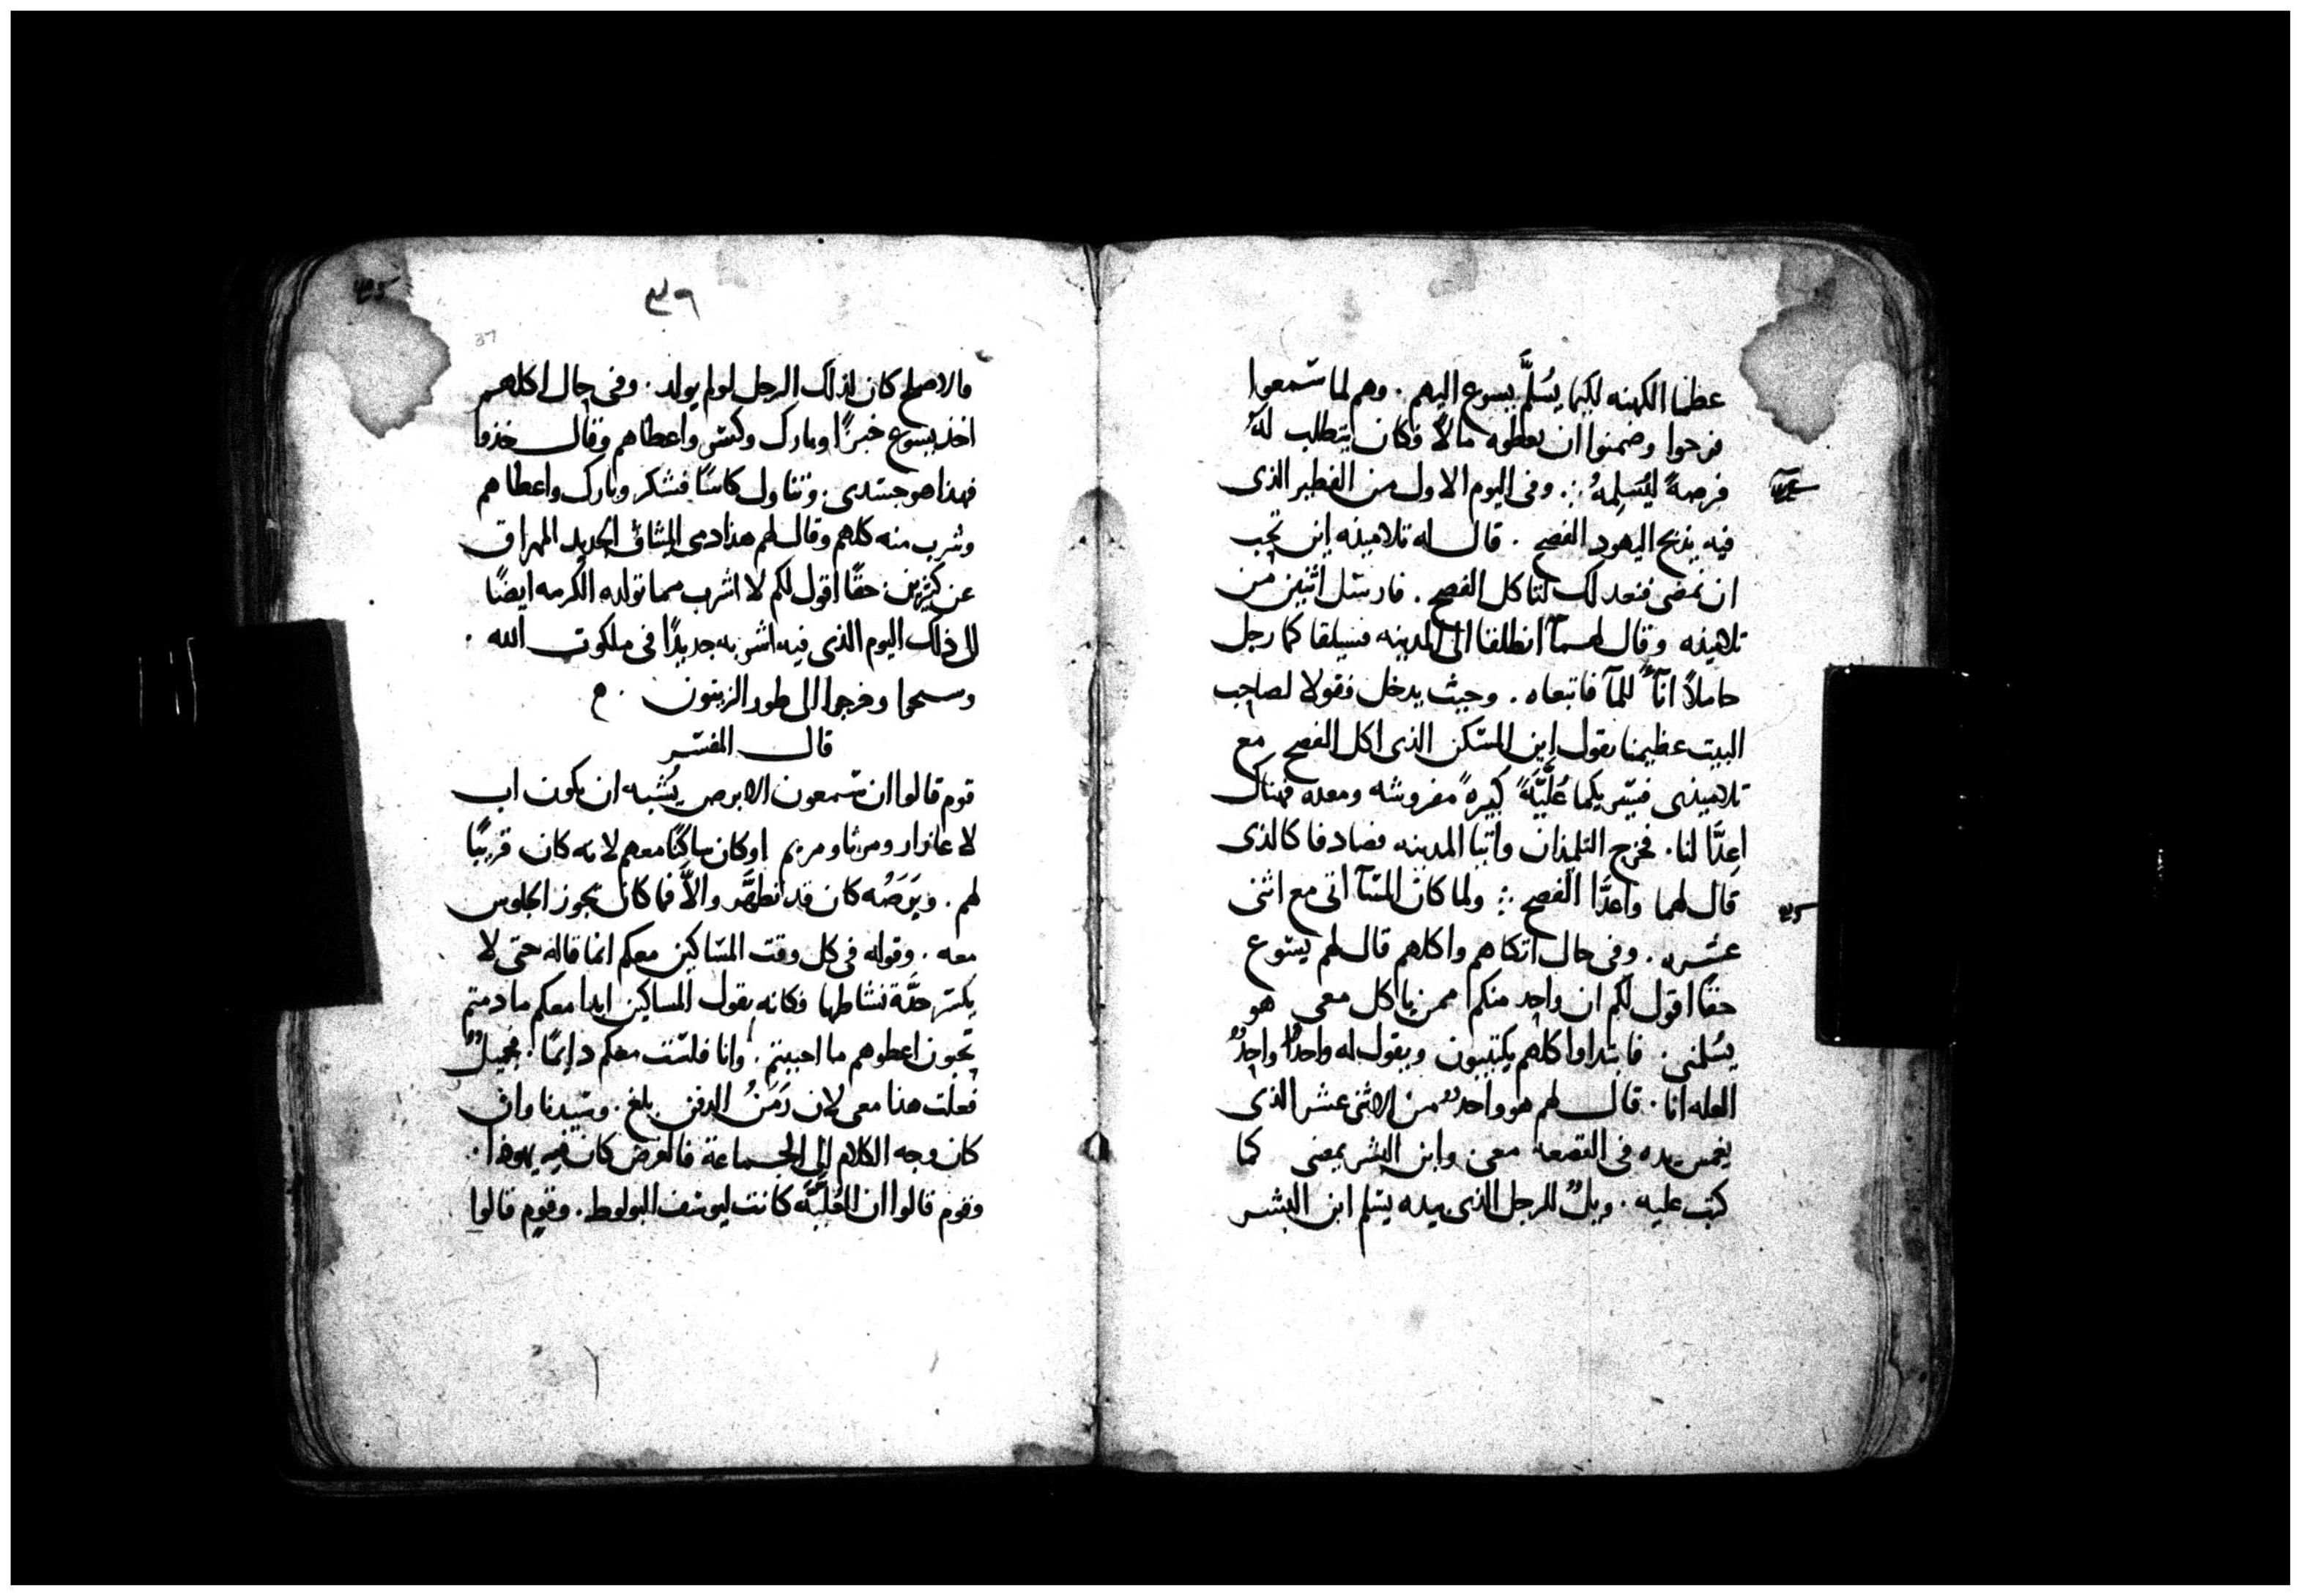 عظما الكهنه لكيما يُسَلَّم يسوع اليهم . وهم لما سمعوا
فرحوا وضمنوا ان يعطوه مالاً وكان يتطلب لهُ
فرصةً ليُسَلِمهُ . وفى اليوم الاول من الفطير الذى
فيه يذبح اليهود الفصح . قال له تلاميذه اين تحب
ان نمضى فنعد لك لتاكل الفصح . فارسل اثنين من
تلاميذه وقال لهمآ انطلقا الى المدينه فسيلقا كما رجل
حاملاً انآً للمآ فاتبعاه . وحيث يدخل فقولا لصاحب
البيت عظيمنا يقول اين المسكن الذى اكل الفصح مع
تلاميذى فيريكما عُلِّيَّةً كبيرةً مفروشه ومعده فهناك
اعِدَّا لنا . فخرج التلميذان واتيا المدينه فصادفا كالذى
قال لهما واعَدَّا الفصح ⁘ ولما كان المسآ اتى مع اثنى
عشره . وفى حال اتكاهم واكلهم قال لهم يسوع
حقاً اقول لكم ان واحد منكم ممن ياكل معى هو
يُسلمنى . فابتداوا كلهم يكتيبون ويقول له واحدٌ واحدٌ
العله انا . قال لهم هو واحدٌ من الاثنى عشر الذى
يغمس يده فى القصعه معى وابن البشر يمضى كما
كتب عليه . ويلٌ للرجل الذى بيده يسلم ابن البشر
٣٦
37
فالاصلح كان لذلك الرجل لو لم يولد . وفى حال اكلهم
اخذ يسوع خبزًا وبارك وكسر واعطاهم وقال خذوا
فهذا هو جسدى . وتناول كاسًا فشكر وبارك واعطاهم
وشرب منه كلهم وقال لهم هذا دمى الميثاق الجديد المهراق
عن كثيرين . حقًا اقول لكم لا اشرب مما تولده الكرمه ايضًا
الى ذلك اليوم الذى فيه اشربه جديدًا فى ملكوت الله .
وسبحوا وخرجوا الى طور الزيتون .
قال المفسر
قوم قالوا ان سمعون الابرص يُشبه ان يكون اب
لاعازار ومرثا ومريم او كان ساكنًا معهم لانه كان قريبًا
لهم . وبَرَصُه كان قد تطهَّر والاَّ فما كان يجوز الجلوس
معه . وقوله فى كل وقت المساكين معكم انما قاله حتى لا
يكسر حدَّة نشاطها فكانه يقول المساكين ابدا معكم ما دمتم
تحبون اعطوهم ما احببتم . وانا فلست معكم دايمًا . فجميلٌ
فعلت هذا معى لان زمنُ الدفن بلغ . وسيدنا وان
كان وجه الكلام الى الجماعة فالغرض كان فيه يهوذا .
وقوم قالوا ان العُلِّيَّه كانت ليوسف البولوط . وقوم قالوا